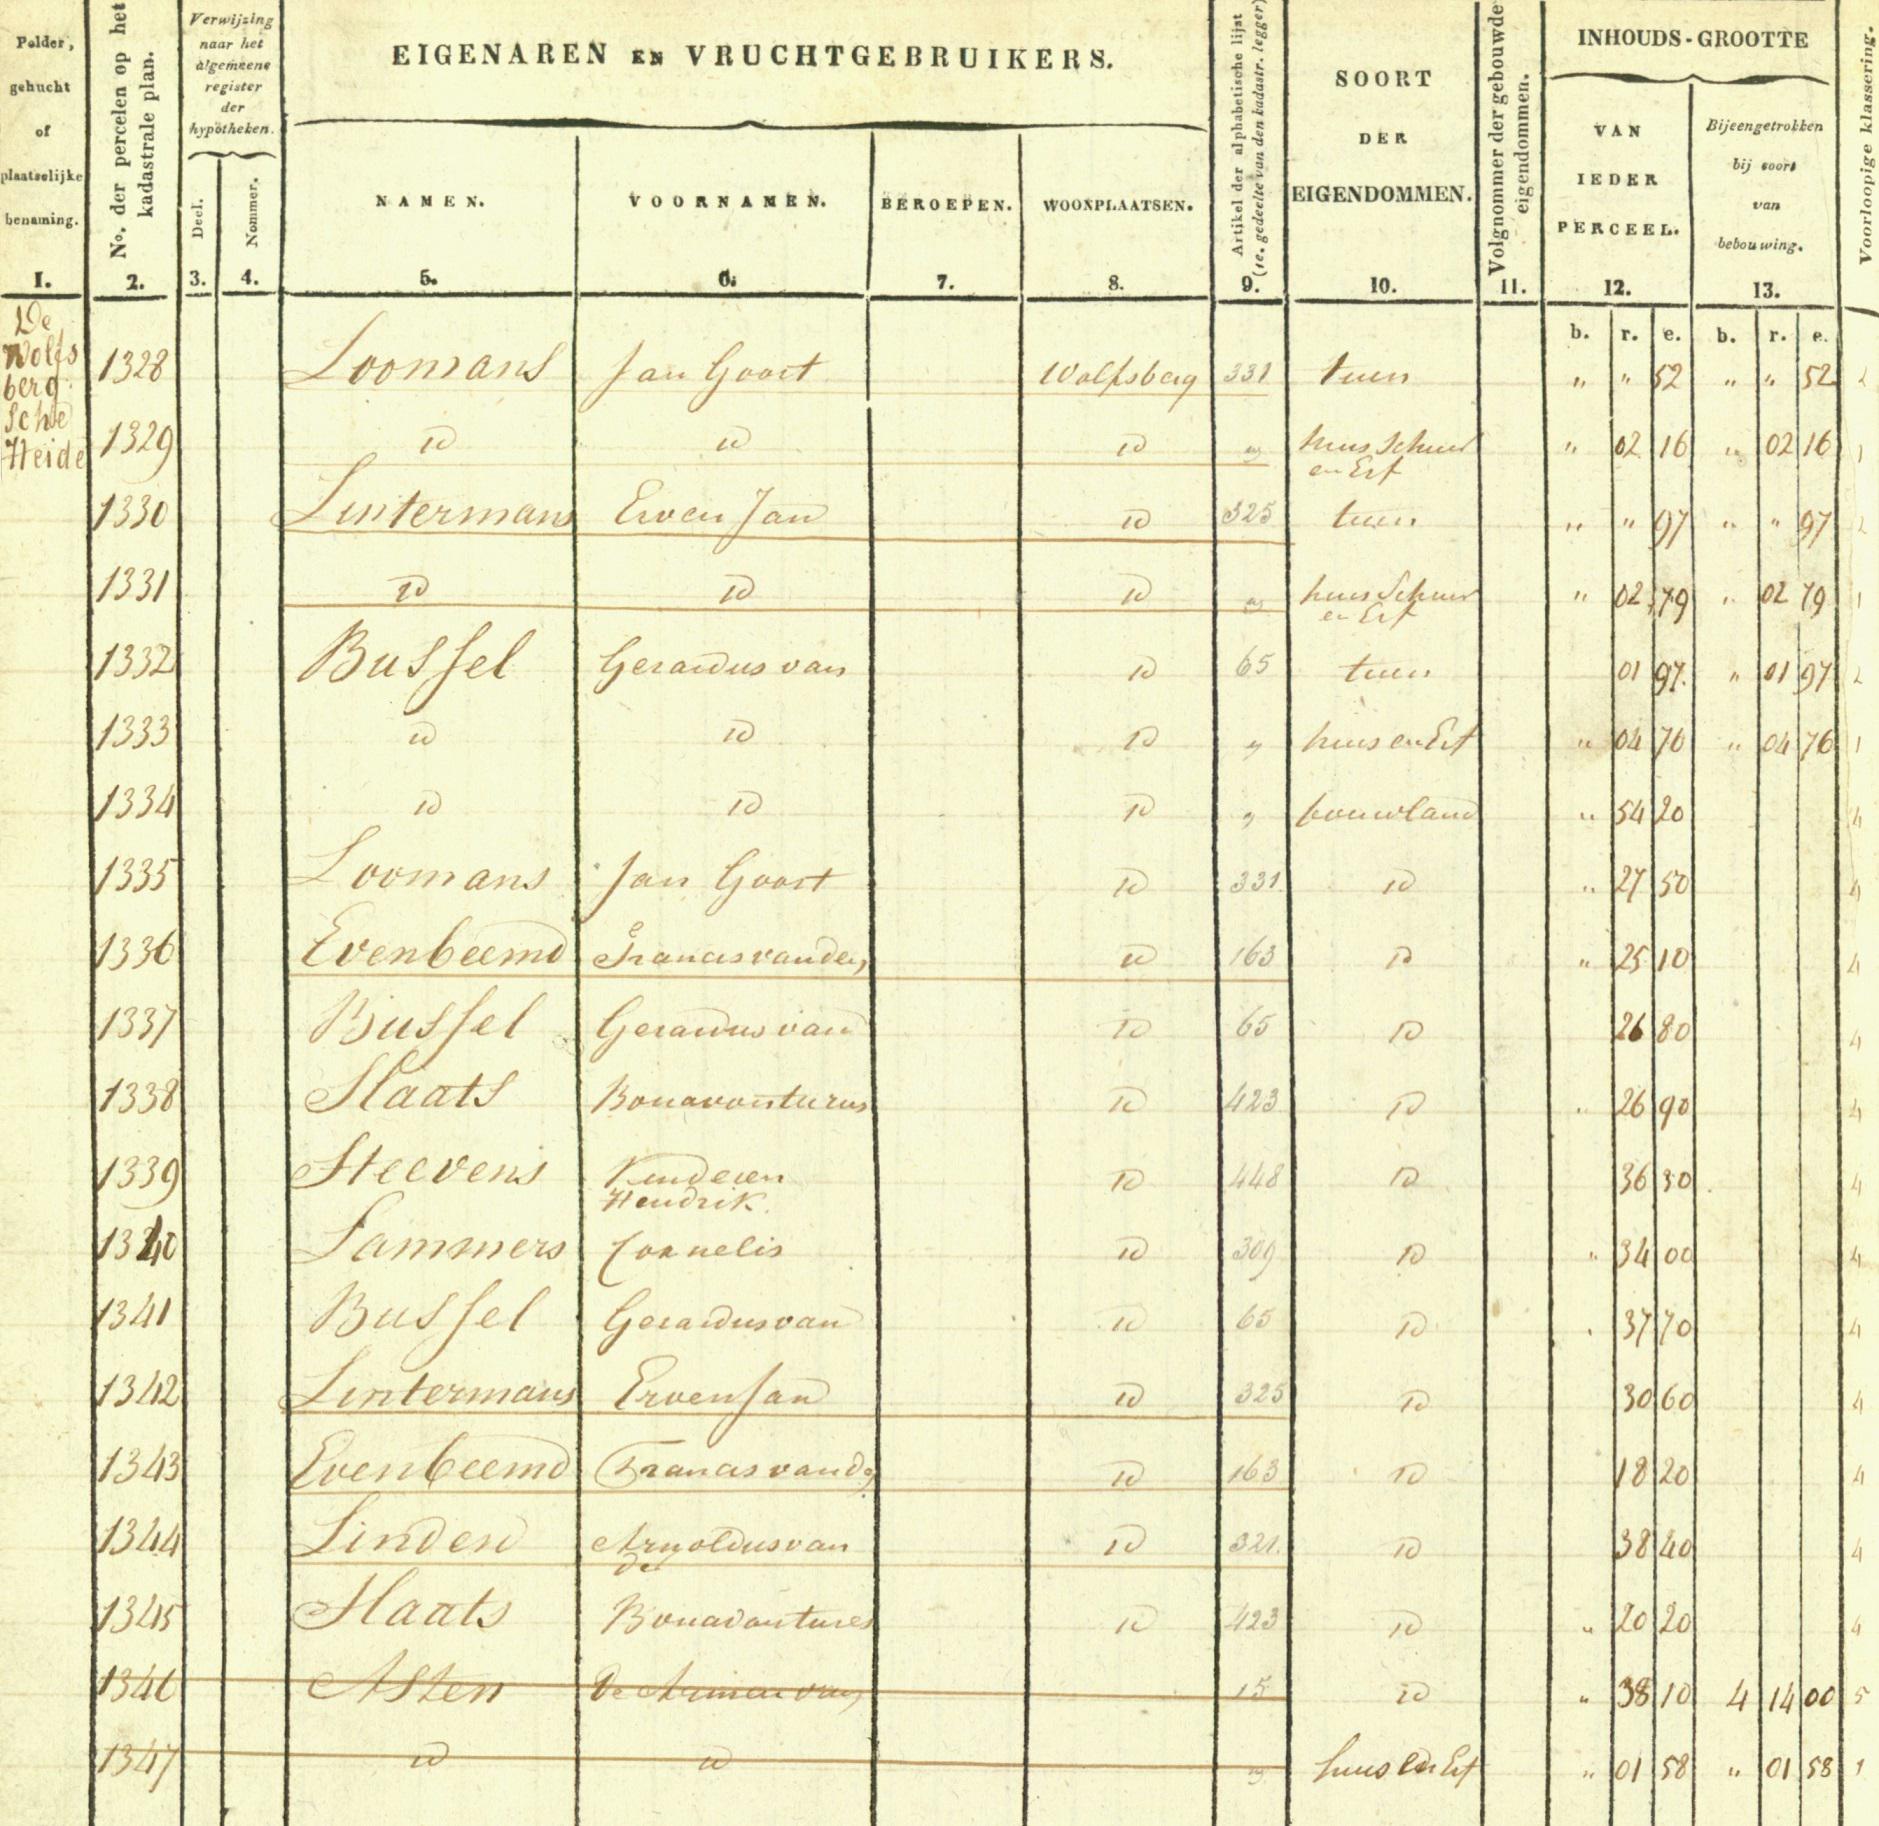 Polder, gehucht of plaatselijke benaming.
No. der percelen op het kadastrale plan.
Verwijzing naar het algemeene register der hypotheken.
Deel.
Nommer.
EIGENAREN EN VRUCHTGEBRUIKERS.
NAMEN.
VOORNAMEN.
BEROEPEN.
WOONPLAATSEN.
Artikel der alphabetische lijst (1e. gedeelte van den kadastr. legger)
SOORT DER EIGENDOMMEN.
Volgnommer der gebouwde eigendommen.
INHOUDS-GROOTTE
VAN IEDER PERCEEL.
Bijeengetrokken bij soort van bebouwing.
Voorloopige klassering.
1. 2. 3. 4. 5. 6. 7. 8. 9. 10. 11. 12. 13.
b. r. e. b. r. e.
De Wolfs berg Sche Heide
1328 Loomans Jan Goort Wolfsberg 331 tuin " " 52 " " 52 2
1329 id id id " huis Schuur en Erf " 02 16 " 02 16 1
1330 Lintermans Erven Jan id 325 tuin " " 97 " " 97 2
1331 id id id " huis Schuur en Erf " 02 79 " 02 79 1
1332 Bussel Gerardus van id 65 tuin 01 97 " 01 97 2
1333 id id id " huis en Erf " 04 76 " 04 76 1
1334 id id id " bouwland " 54 20 4
1335 Loomans Jan Goort id 331 id " 27 50 4
1336 Evenbeemd Francis vanden id 163 id " 25 10 4
1337 Bussel Gerardus van id 65 id 26 80 4
1338 Slaats Bonavonturus id 423 id " 26 90 4
1339 Steevens Kinderen Hendrik id 448 id 36 30 4
1340 Lammers Cornelis id 309 id " 34 00 4
1341 Bussel Gerardus van id 65 id 37 70 4
1342 Lintermans Erven Jan id 325 id 30 60 4
1343 Evenbeemd Francis vand id 163 id 18 20 4
1344 Linden Arnoldus van de id 321 id 38 40 4
1345 Slaats Bonavontures id 423 id " 20 20 4
1346 Asten De Armen van 15 id " 38 10 4 14 00 5
1347 id id " huis en Erf " 01 58 " 01 58 1